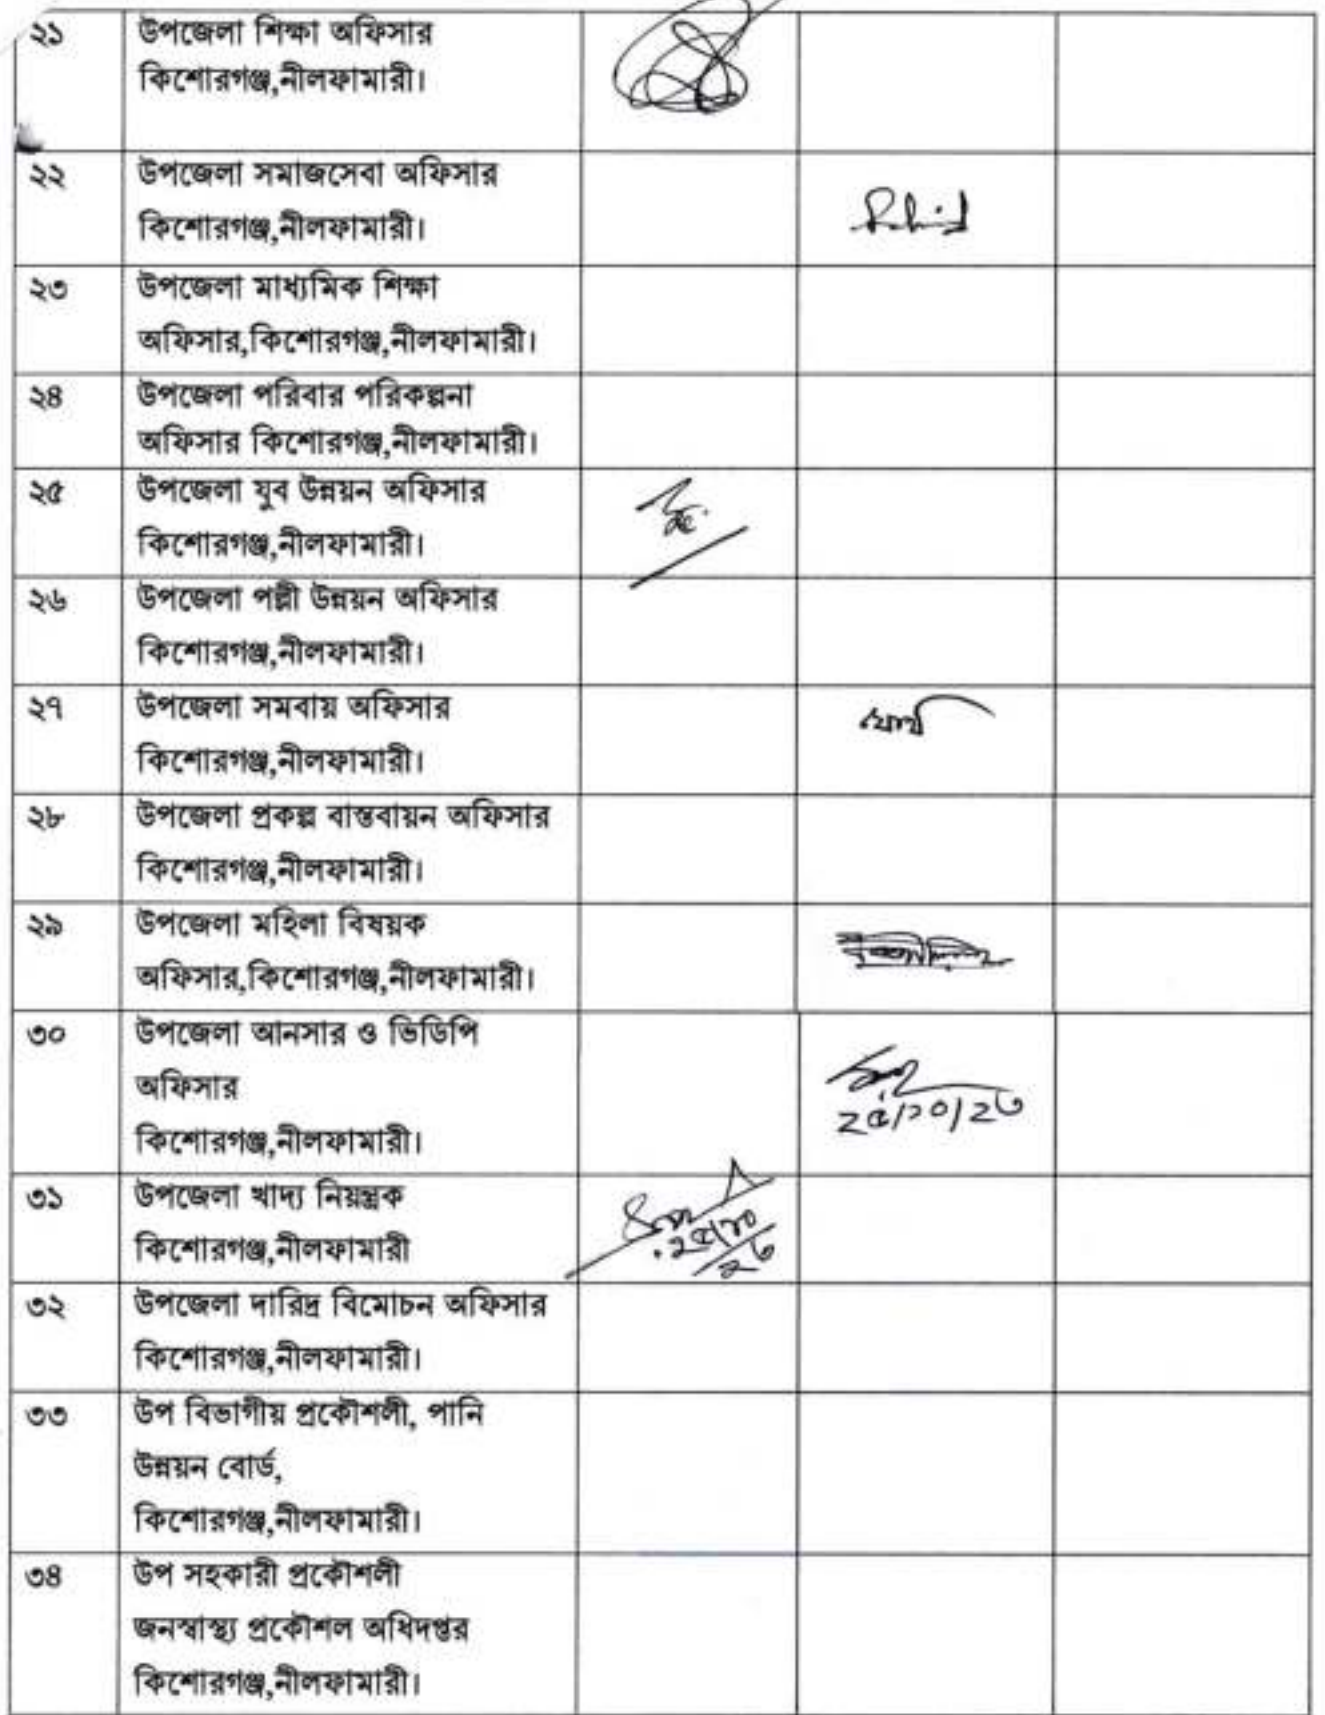 ২১ উপজেলা শিক্ষা অফিসার
কিশোরগঞ্জ,নীলফামারী।
২২ উপজেলা সমাজসেবা অফিসার
কিশোরগঞ্জ,নীলফামারী।
২৩ উপজেলা মাধ্যমিক শিক্ষা
অফিসার,কিশোরগঞ্জ,নীলফামারী।
২৪ উপজেলা পরিবার পরিকল্পনা
অফিসার কিশোরগঞ্জ,নীলফামারী।
২৫ উপজেলা যুব উন্নয়ন অফিসার
কিশোরগঞ্জ,নীলফামারী।
২৬ উপজেলা পল্লী উন্নয়ন অফিসার
কিশোরগঞ্জ,নীলফামারী।
২৭ উপজেলা সমবায় অফিসার
কিশোরগঞ্জ,নীলফামারী।
২৮ উপজেলা প্রকল্প বাস্তবায়ন অফিসার
কিশোরগঞ্জ,নীলফামারী।
২৯ উপজেলা মহিলা বিষয়ক
অফিসার,কিশোরগঞ্জ,নীলফামারী।
৩০ উপজেলা আনসার ও ভিডিপি
অফিসার
২৫/১০/২৩
কিশোরগঞ্জ,নীলফামারী।
৩১ উপজেলা খাদ্য নিয়ন্ত্রক
কিশোরগঞ্জ,নীলফামারী
২৫/১০/২৩
৩২ উপজেলা দারিদ্র বিমোচন অফিসার
কিশোরগঞ্জ,নীলফামারী।
৩৩ উপ বিভাগীয় প্রকৌশলী, পানি
উন্নয়ন বোর্ড,
কিশোরগঞ্জ,নীলফামারী।
৩৪ উপ সহকারী প্রকৌশলী
জনস্বাস্থ্য প্রকৌশল অধিদপ্তর
কিশোরগঞ্জ,নীলফামারী।